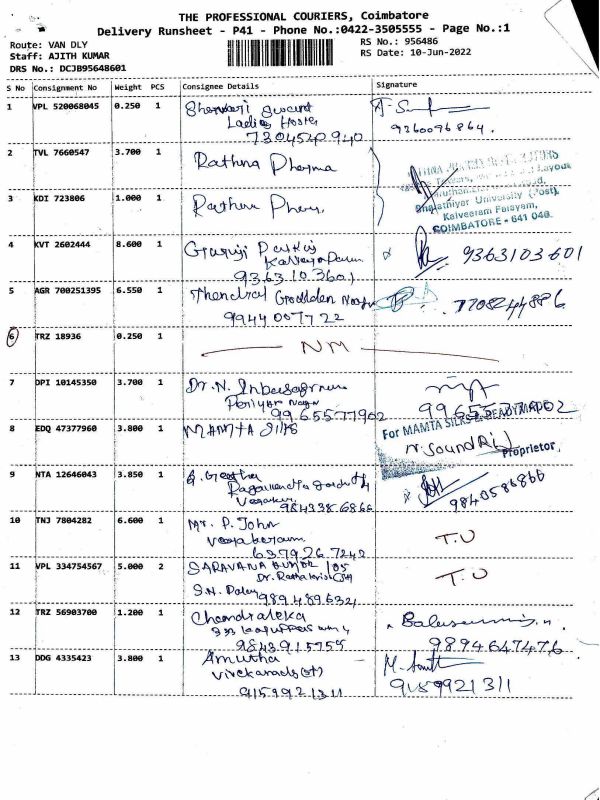 THE PROFESSIONAL COURIERS, Coimbatore
Delivery Runsheet - P41 - Phone No.:0422-3505555 - Page No.:1
Route: VAN DLY
Staff: AJITH KUMAR
DRS No.: DCJB95648601
RS No.: 956486
RS Date: 10-Jun-2022
S No Consignment No Weight PCS Consignee Details Signature
1 VPL 520068045 0.250 1
Ladies Hostel
7304540940
9360096864.
2 TVL 7660547 3.700 1 Rathna Pharma
3 KDI 723806 1.000 1 Rathna
Bharathiyar University (Post),
Kalveeram Palayam,
COIMBATORE - 641 046.
4 KVT 2602444 8.600 1
9363103601
9363103601
5 AGR 700251395 6.550 1 Thendral Nagar
9944007722
7708244886
6 TRZ 18936 0.250 1 NM
7 DPI 10145350 3.700 1 Dr. N.
Periyar Nagar
9965577902
9965577902
8 EDQ 47377960 3.800 1 MAMTA Silks
For MAMTA SILKS & READYMADE
Proprietor
9 NTA 12646043 3.850 1 G. Geetha
9843386866
9840586866
10 TNJ 7804282 6.600 1 Mr. P. John
6379267242
T.U
11 VPL 334754567 5.000 2 SARAVANA
S.N. Palay 989489632
T.U
12 TRZ 56903700 1.200 1 Chandraleka
9843915755
9894647476
13 DDG 4335423 3.800 1 Amutha
9159921311
9159921311